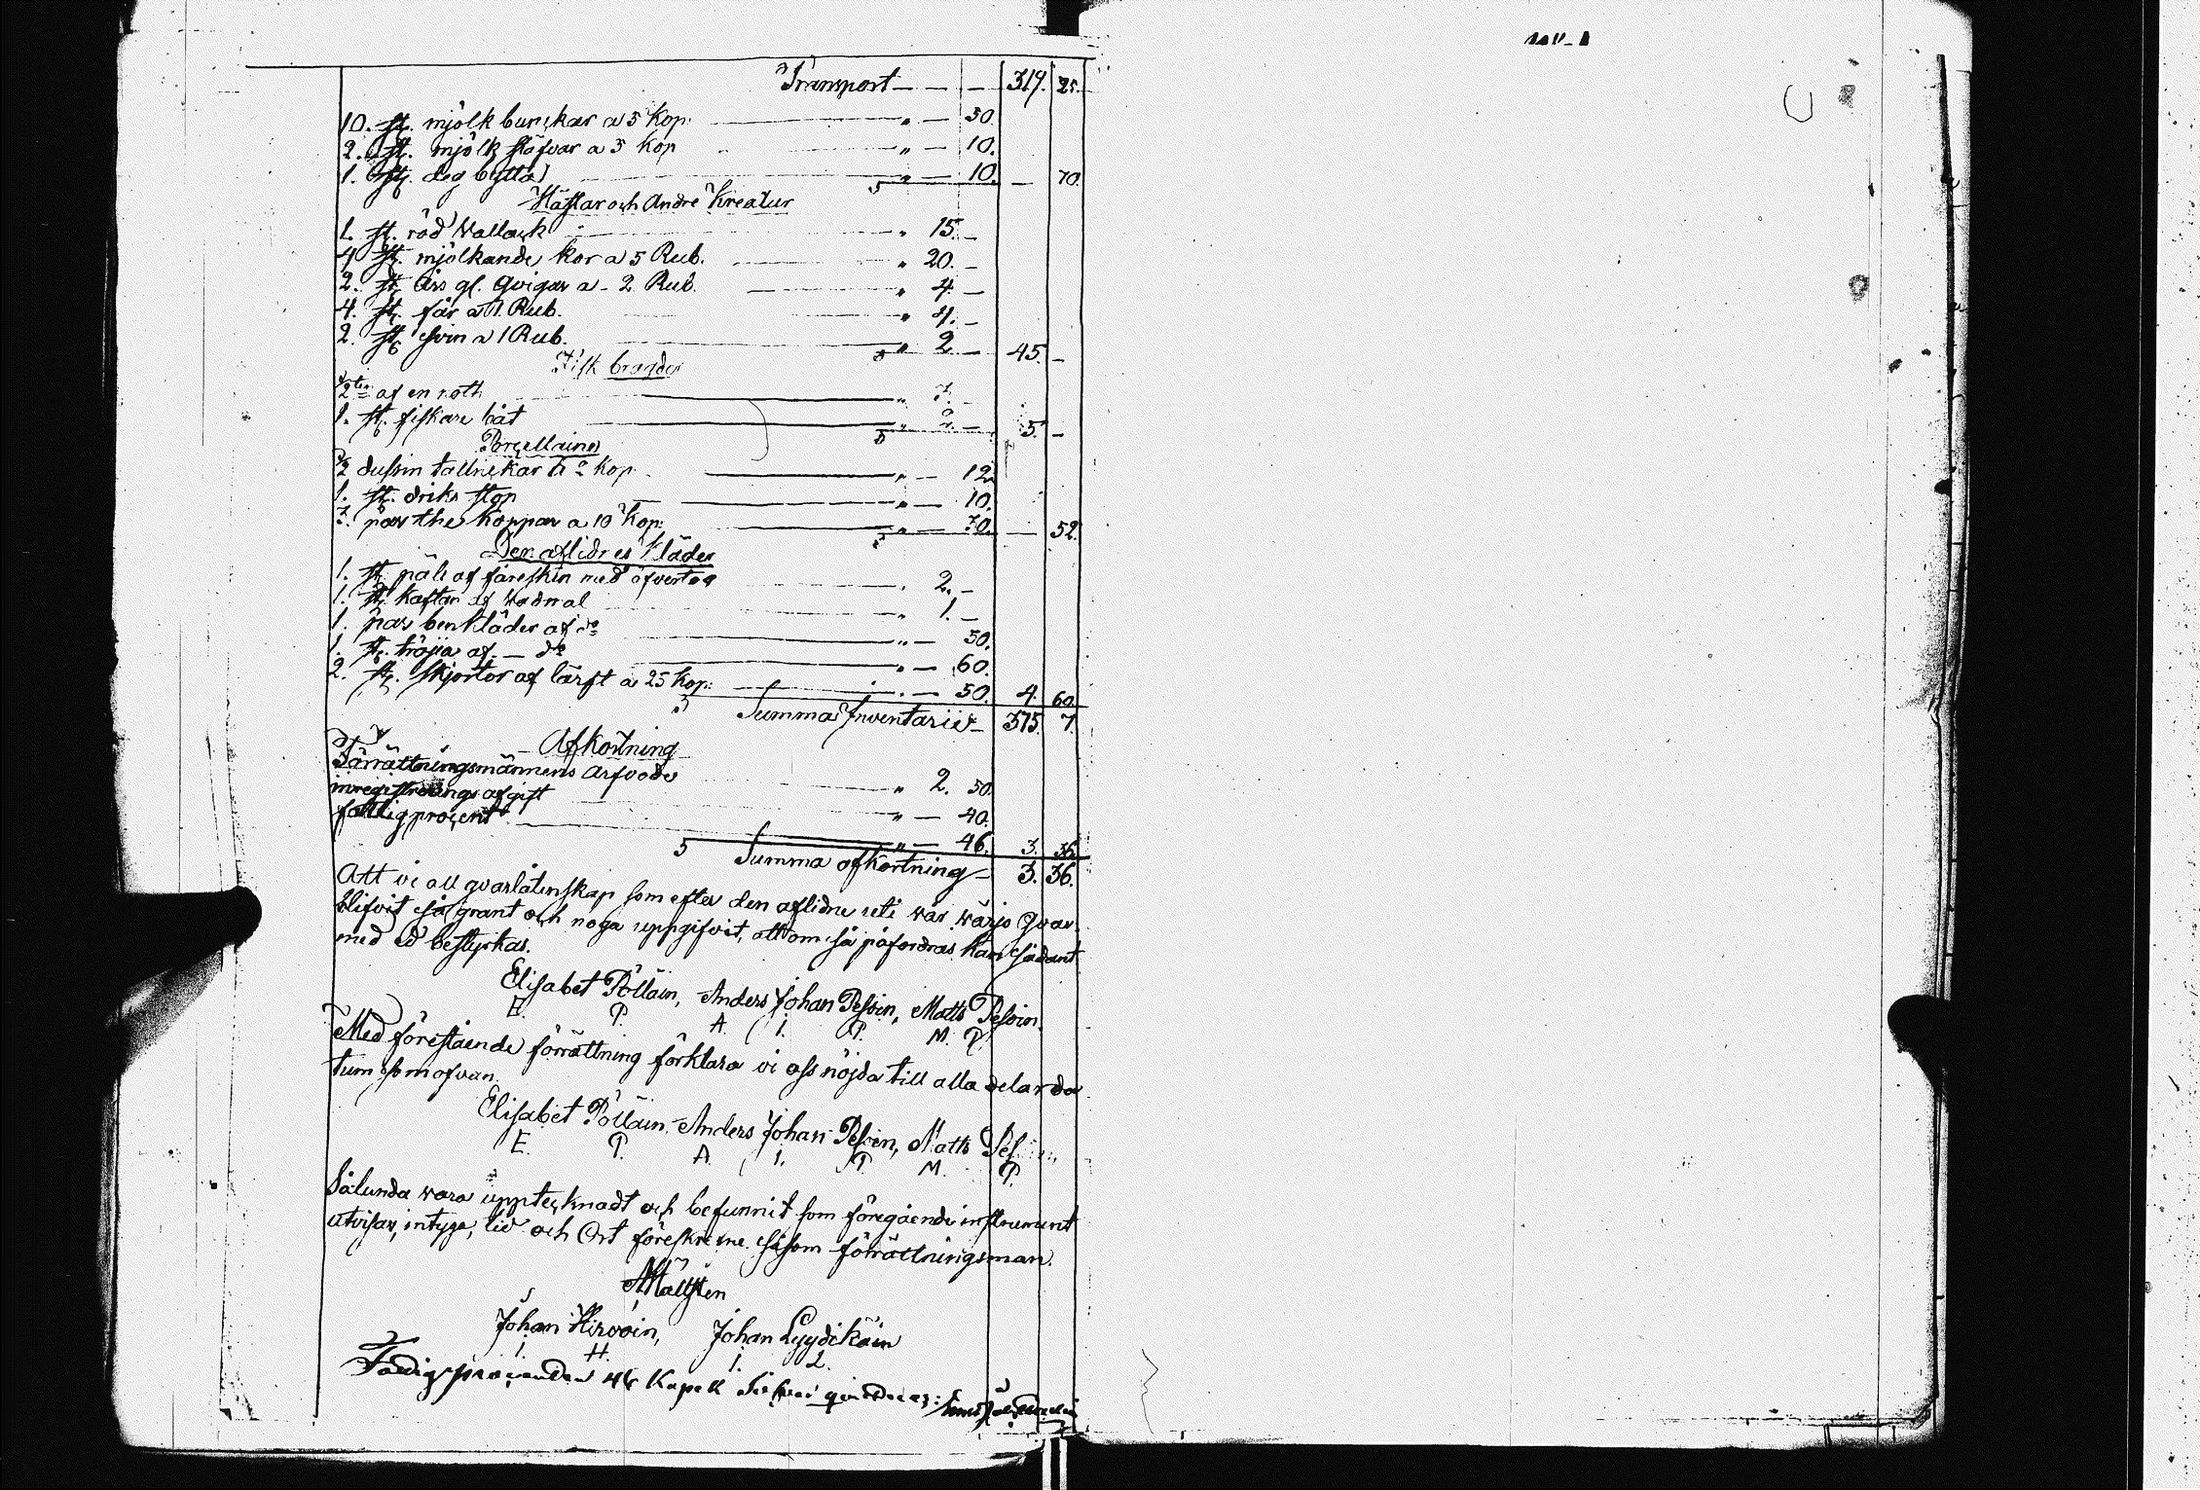 Transport — — — 319. 25.
10. st. mjölk bunckar a 5 Kop. " — 50.
2. st. mjölk stäfvar a 5 Kop " — 10.
1. st. deg bytta " — 10. — 70.
Hästar och Andre Kreatur
1. st. röd Vallack " 15. —
4 st. mjölkande kor a 5 Rub. " 20. —
2. st. års gl. qvigor a - 2 Rub. " 4. —
4. st. får a 1 Rub. " 4. —
2. st. svin a 1 Rub. " 2 — 45. —
Fisk bragder
1/2ten af en noth " 3. —
1. st. fiskare båt " 2. — 5. —
Porcellainer
1/2 dussin tallrickar a 2 Kop. " — 12.
1. st. driks stop " — 10.
3. par the koppar a 10 Kop: " — 30. — 52.
Den aflidnes Kläder
1. st. päls af fårskin med öfvertag " 2. —
1. st. kaftan af Vadmal " 1. —
1. par benkläder af do " — 50.
1. st. tröjia af — do " — 60.
2. st. skjortor af lärft a 25 Kop: " — 50. 4. 60.
Summa Inventarier — 375. 7
Afkortning
Förrättningsmännens Arfvode " 2. 50.
inregistrerings afgift " — 40.
fattigprocent " — 46. 3. 36.
Summa afkortning — 3. 36.
Att vi all qvarlåtenskap som efter den aflidne uti vår värjo qvar
blifvit så grant och noga uppgifvit, att om så påfordras kan sådant
med ed bestyrkas.
Elisabet Pölläin, Anders Johan Pesoin, Matts Pesoin.
E. P. A. I. P. M. P.
Med förestående förrättning förklara vi oss nöjda till alla delar da
tum som ofvan.
Elisabet Pölläin, Anders Johan Pesoin, Matts
E. P. A. I. P. M. P.
Sålunda vara upptecknadt och befunnit som föregående instrument
utvisar, intyga, tid och Ort föreskrefne såsom förrättningsman.
Johan Hirvoin, Johan Lyydikäin
I. H. I. L.
46 Kopek